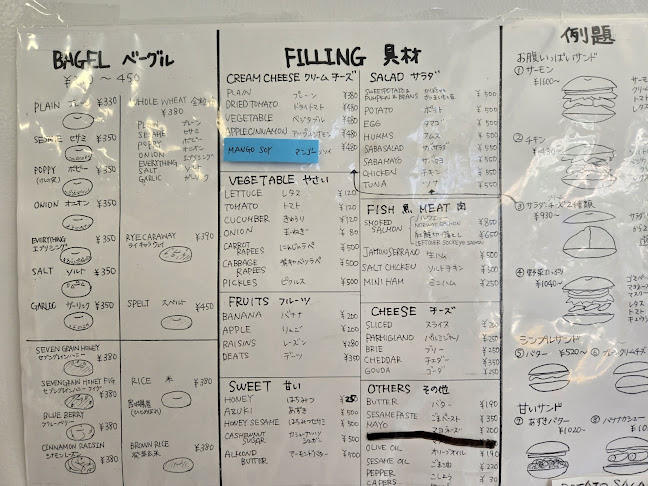 BAGEL ベーグル
~ 450
PLAIN プレーン ¥330
SESAME セサミ ¥350
POPPY ポピー ¥350
ONION オニオン ¥350
EVERYTHING エブリシング ¥350
SALT ソルト ¥350
GARLIC ガーリック ¥350
SEVEN GRAIN HONEY
セブングレインハニー
¥380
SEVENGRAIN HONEY FIG
¥380
BLUE BERRY
ブルーベリー
¥380
CINNAMON RAISIN
シナモンレーズン
¥380
WHOLE WHEAT
¥380
PLAIN プレーン
SESAME セサミ
POPPY ポピー
ONION オニオン
EVERYTHING エブリシング
SALT ソルト
GARLIC ガーリック
RYE CARAWAY ¥390
ライキャラウェイ
SPELT スペルト ¥450
RICE 米
¥380
BROWN RICE
¥380
FILLING 具材
CREAM CHEESE クリームチーズ
PLAIN プレーン ¥380
DRIED TOMATO ドライトマト
VEGETABLE ベジタブル ¥480
APPLE CINNAMON アップルシナモン ¥480
MANGO SOY マンゴーソイ ¥480
VEGETABLE やさい
LETTUCE レタス ¥120
TOMATO トマト ¥120
CUCUMBER きゅうり ¥120
ONION 玉ねぎ ¥80
CARROT RAPEES にんじんラペ ¥500
CABBAGE RAPEES 紫キャベツラペ ¥500
PICKLES ピクルス ¥500
FRUITS フルーツ
BANANA バナナ ¥200
APPLE りんご ¥200
RAISINS レーズン ¥280
DEATS デーツ ¥350
SWEET 甘い
HONEY はちみつ 250
AZUKI あずき ¥500
HONEY SESAME はちみつセサミ ¥500
CASHEWNUT SUGAR カシューナッツシュガー ¥500
ALMOND BUTTER アーモンドバター ¥500
SALAD サラダ
SWEETPOTATO & PUMPKIN & BEANS ¥500
POTATO ポテト ¥500
EGG タマゴ ¥500
HUMMS フムス ¥500
SABA SALAD サバサラダ ¥550
SABAMAYO サバマヨ ¥550
CHICKEN チキン ¥550
TUNA ツナ ¥550
FISH 魚 MEAT 肉
SMOKED SALMON
ノルウェー
NORWAY SALMON
¥800
紅鮭切り落とし
LEFTOVER SOCKEYE SALMON
¥650
JAMON SERRANO 生ハム ¥550
SALT CHICKEN ソルトチキン ¥500
MINI HAM ミニハム ¥250
CHEESE チーズ
SLICED スライス
PARMIGIANO パルミジャーノ ¥250
BRIE ブリー ¥250
CHEDDAR チェダー
GOUDA ゴーダ ¥250
OTHERS その他
BUTTER バター ¥190
SESAME PASTE ごまペースト ¥350
MAYO マヨネーズ ¥200
OLIVE OIL オリーブオイル ¥190
SESAME OIL ごま油 ¥220
PEPPER こしょう ¥30
CAPERS
例題
お腹いっぱいサンド
① サーモン
¥1600~
② チキン
③ サラダチーズ2種類
¥930~
④ 野菜たっぷり
¥1040~
レタス
トマト
シンプルサンド
⑤ バター ¥520~
⑥ クリームチーズ
甘いサンド
⑦ あずきバター
¥1020~
⑧ バナナ
¥1020~
POTATO SALAD